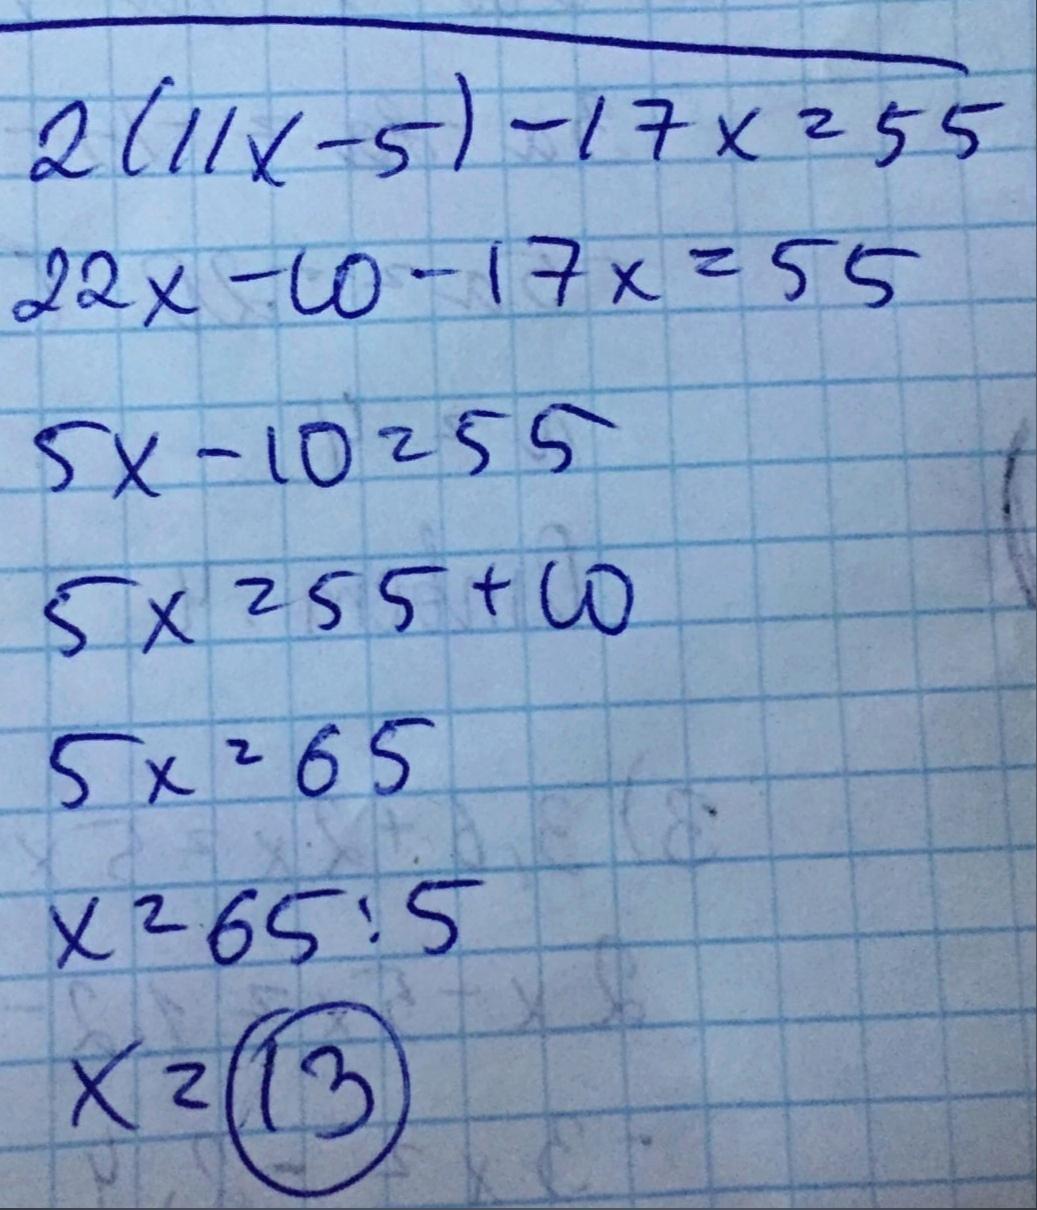 2(11x-5)-17x=55
22x-10-17x=55
5x-10=55
5x=55+10
5x=65
x=65:5
x=13